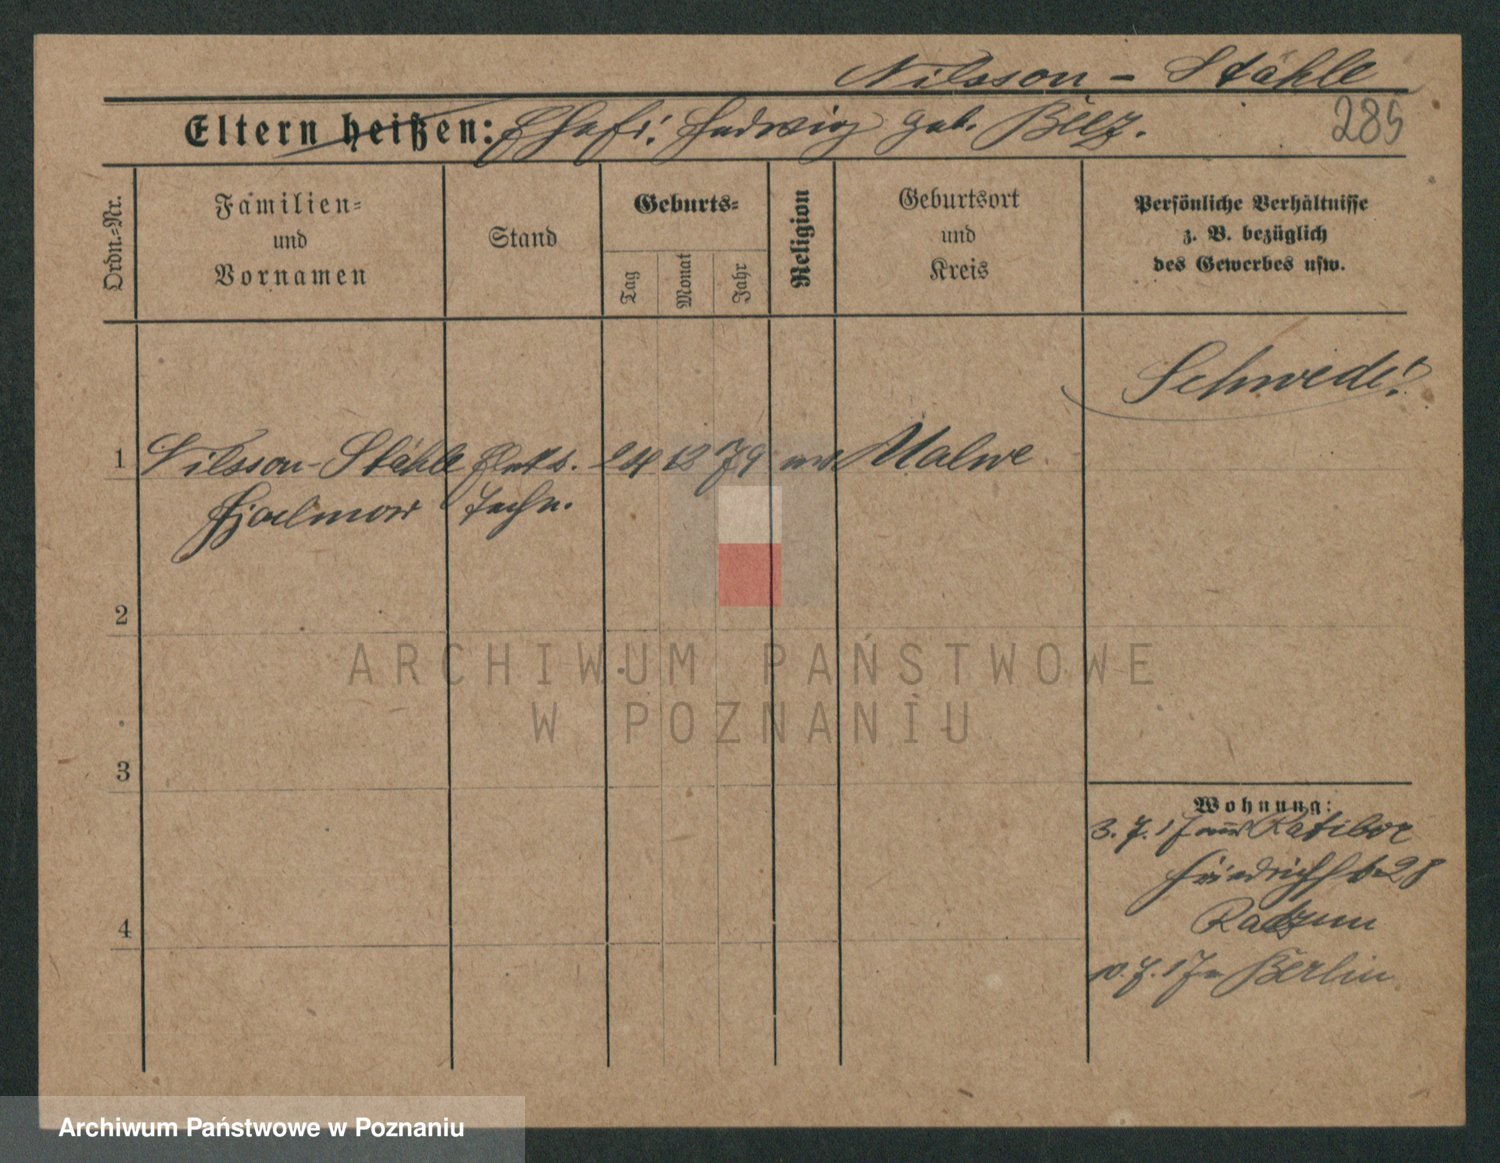 Nilsson - Stähle
Eltern heißen: Ehefr: Hedwig geb. Belz.
285
Ordn.=Nr.
Familien=
und
Vornamen
Stand
Geburts=
Tag
Monat
Jahr
Religion
Geburtsort
und
Kreis
Persönliche Verhältnisse
z. B. bezüglich
des Gewerbes usw.
Schwede!
1 Nilsson-Stähle Elekt. 24 12 79 Malmö
Hjalmar Techn.
2
3
4
Wohnung:
3. 7. 17 aus Ratibor
28
10. 7. 17 n Berlin
ARCHIWUM PAŃSTWOWE
W POZNANIU
Archiwum Państwowe w Poznaniu